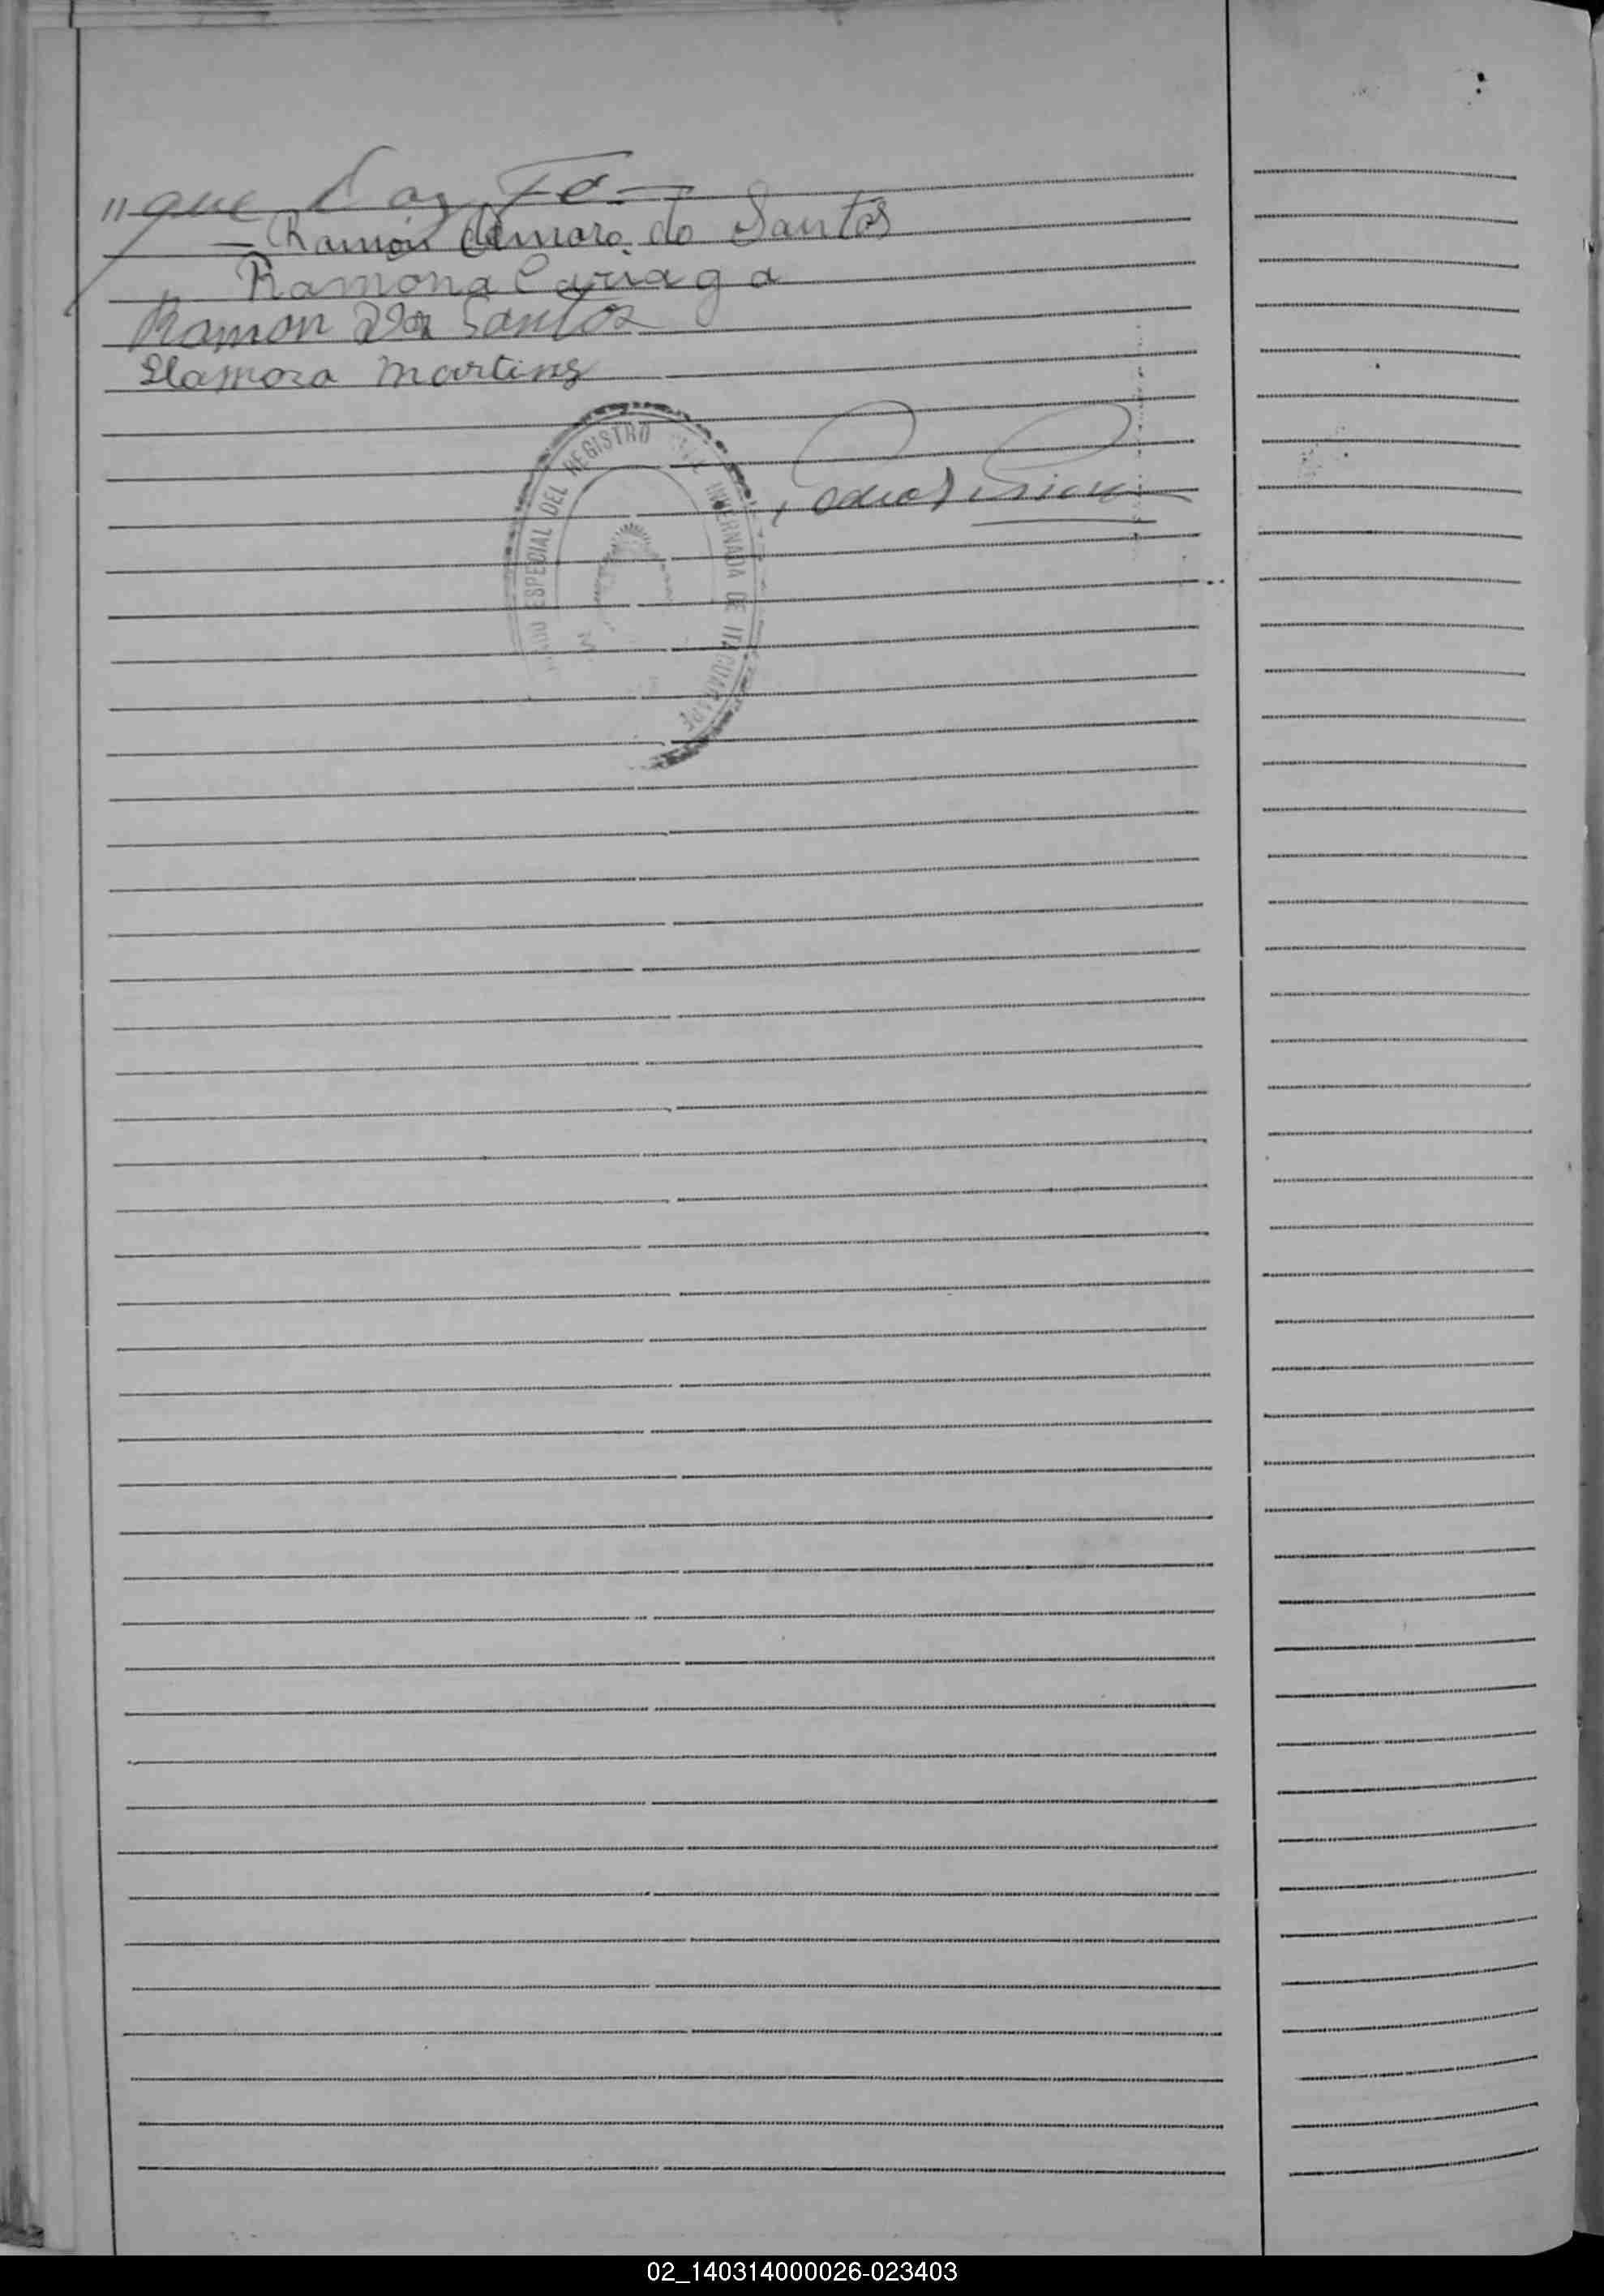 "que Doy Fe.—
— Ramón Amaro do Santos
Ramona Cariaga
Ramon Dos Santos
Elamora Martins
ESPECIAL DEL REGISTRO CIVIL DE ITACUARARE
02_140314000026-023403